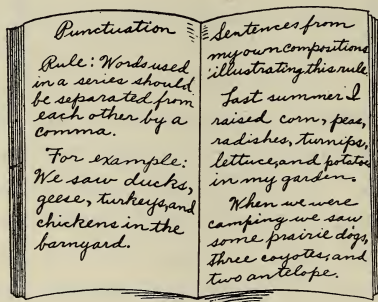 Punctuation
Rule: Words used
in a series should
be separated from
each other by a
comma.
For example:
We saw ducks,
geese, turkeys, and
chickens in the
barnyard.
Sentences from
my own compositions
illustrating this rule.
Last summer I
raised corn, peas,
radishes, turnips,
lettuce, and potatoes
in my garden.
When we were
camping we saw
some prairie dogs,
three coyotes, and
two antelope.